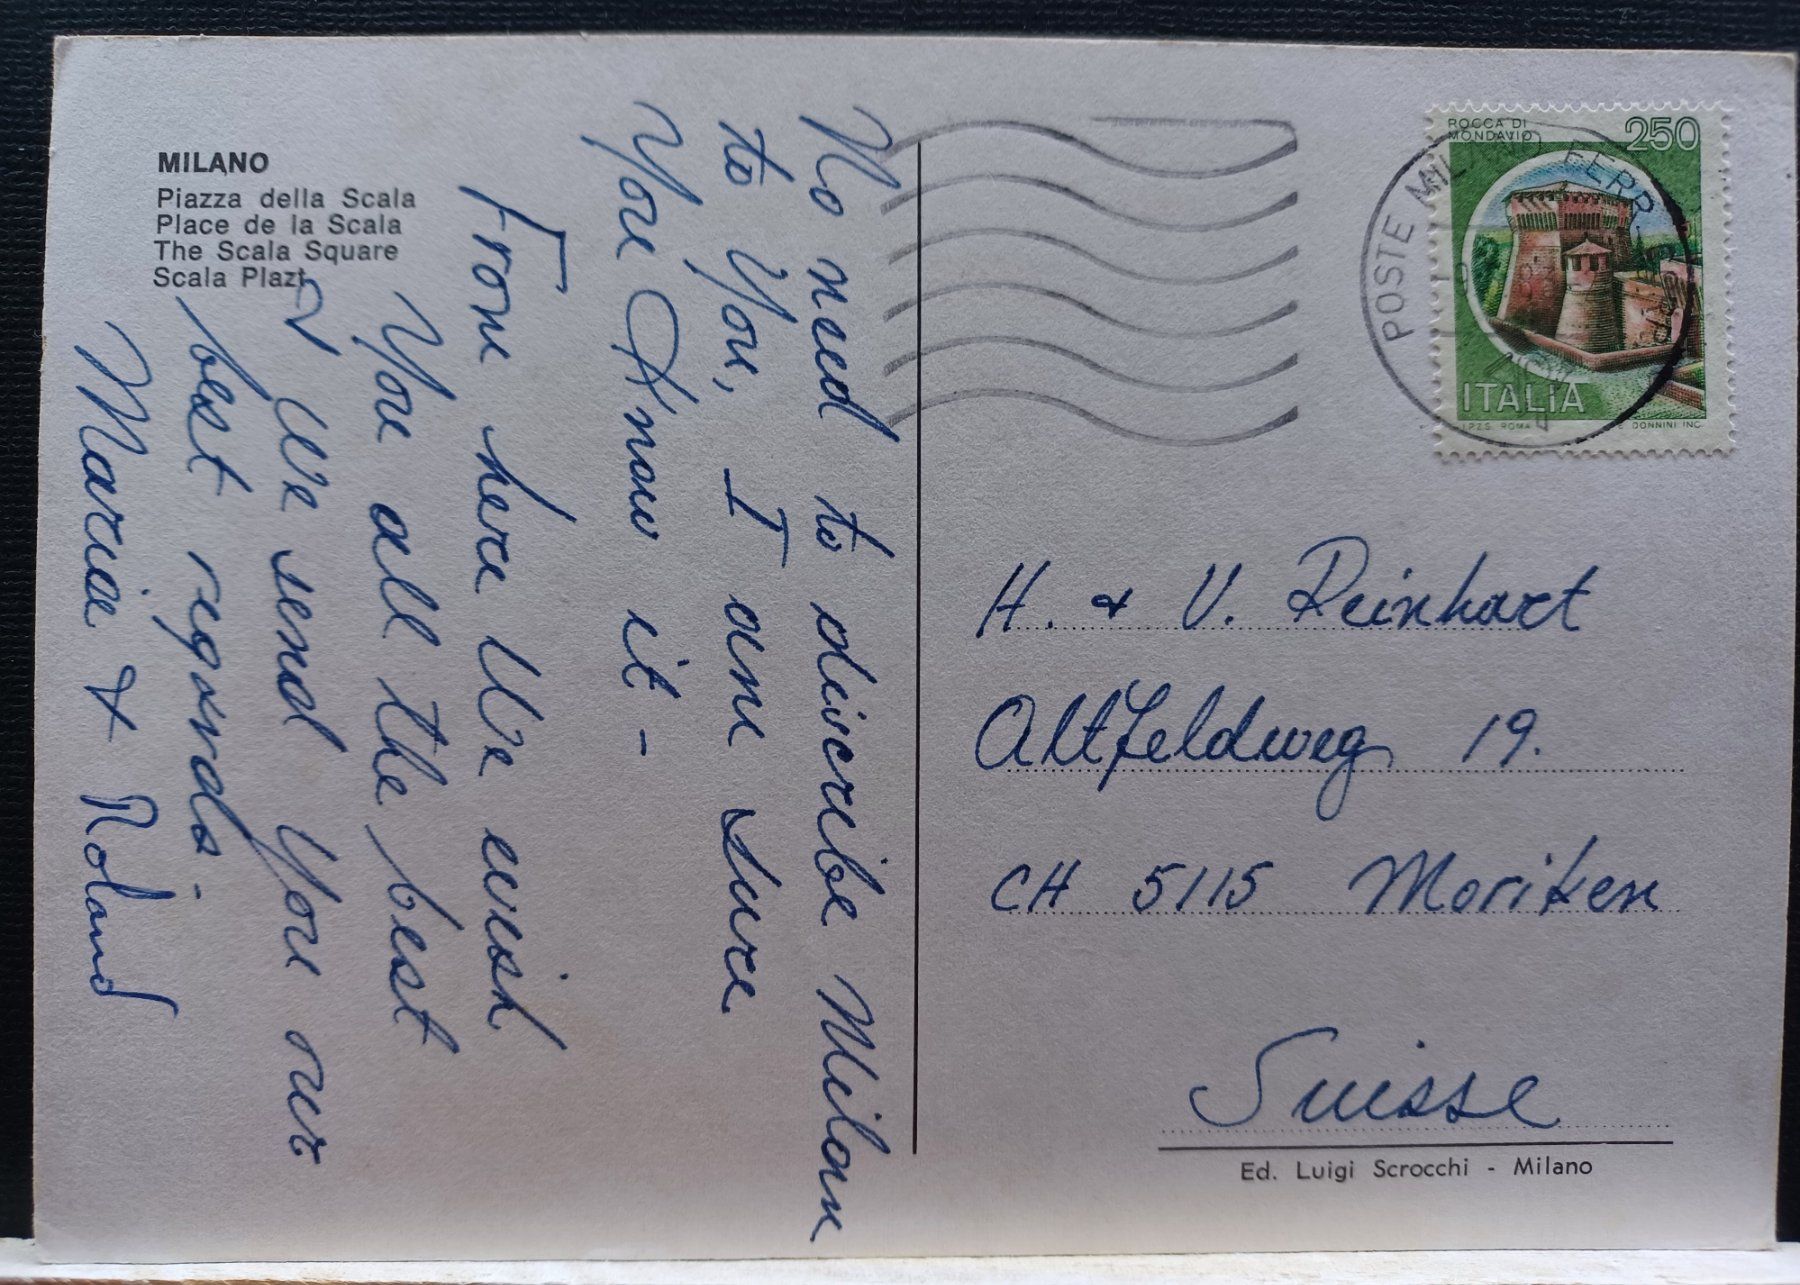 MILANO
Piazza della Scala
Place de la Scala
The Scala Square
Scala Plazt
No need to discribe Milan
to You, I am sure
You Know it -
From here We wish
You all the best
& We send You our
best regards.-
Maria & Roland
ROCCA DI
MONDAVIO
250
ITALIA
I.P.Z.S. ROMA
DONNINI INC.
POSTE MILANO FERR.
H. & V. Reinhart
Altfeldweg 19.
CH 5115 Moriken
Suisse
Ed. Luigi Scrocchi - Milano